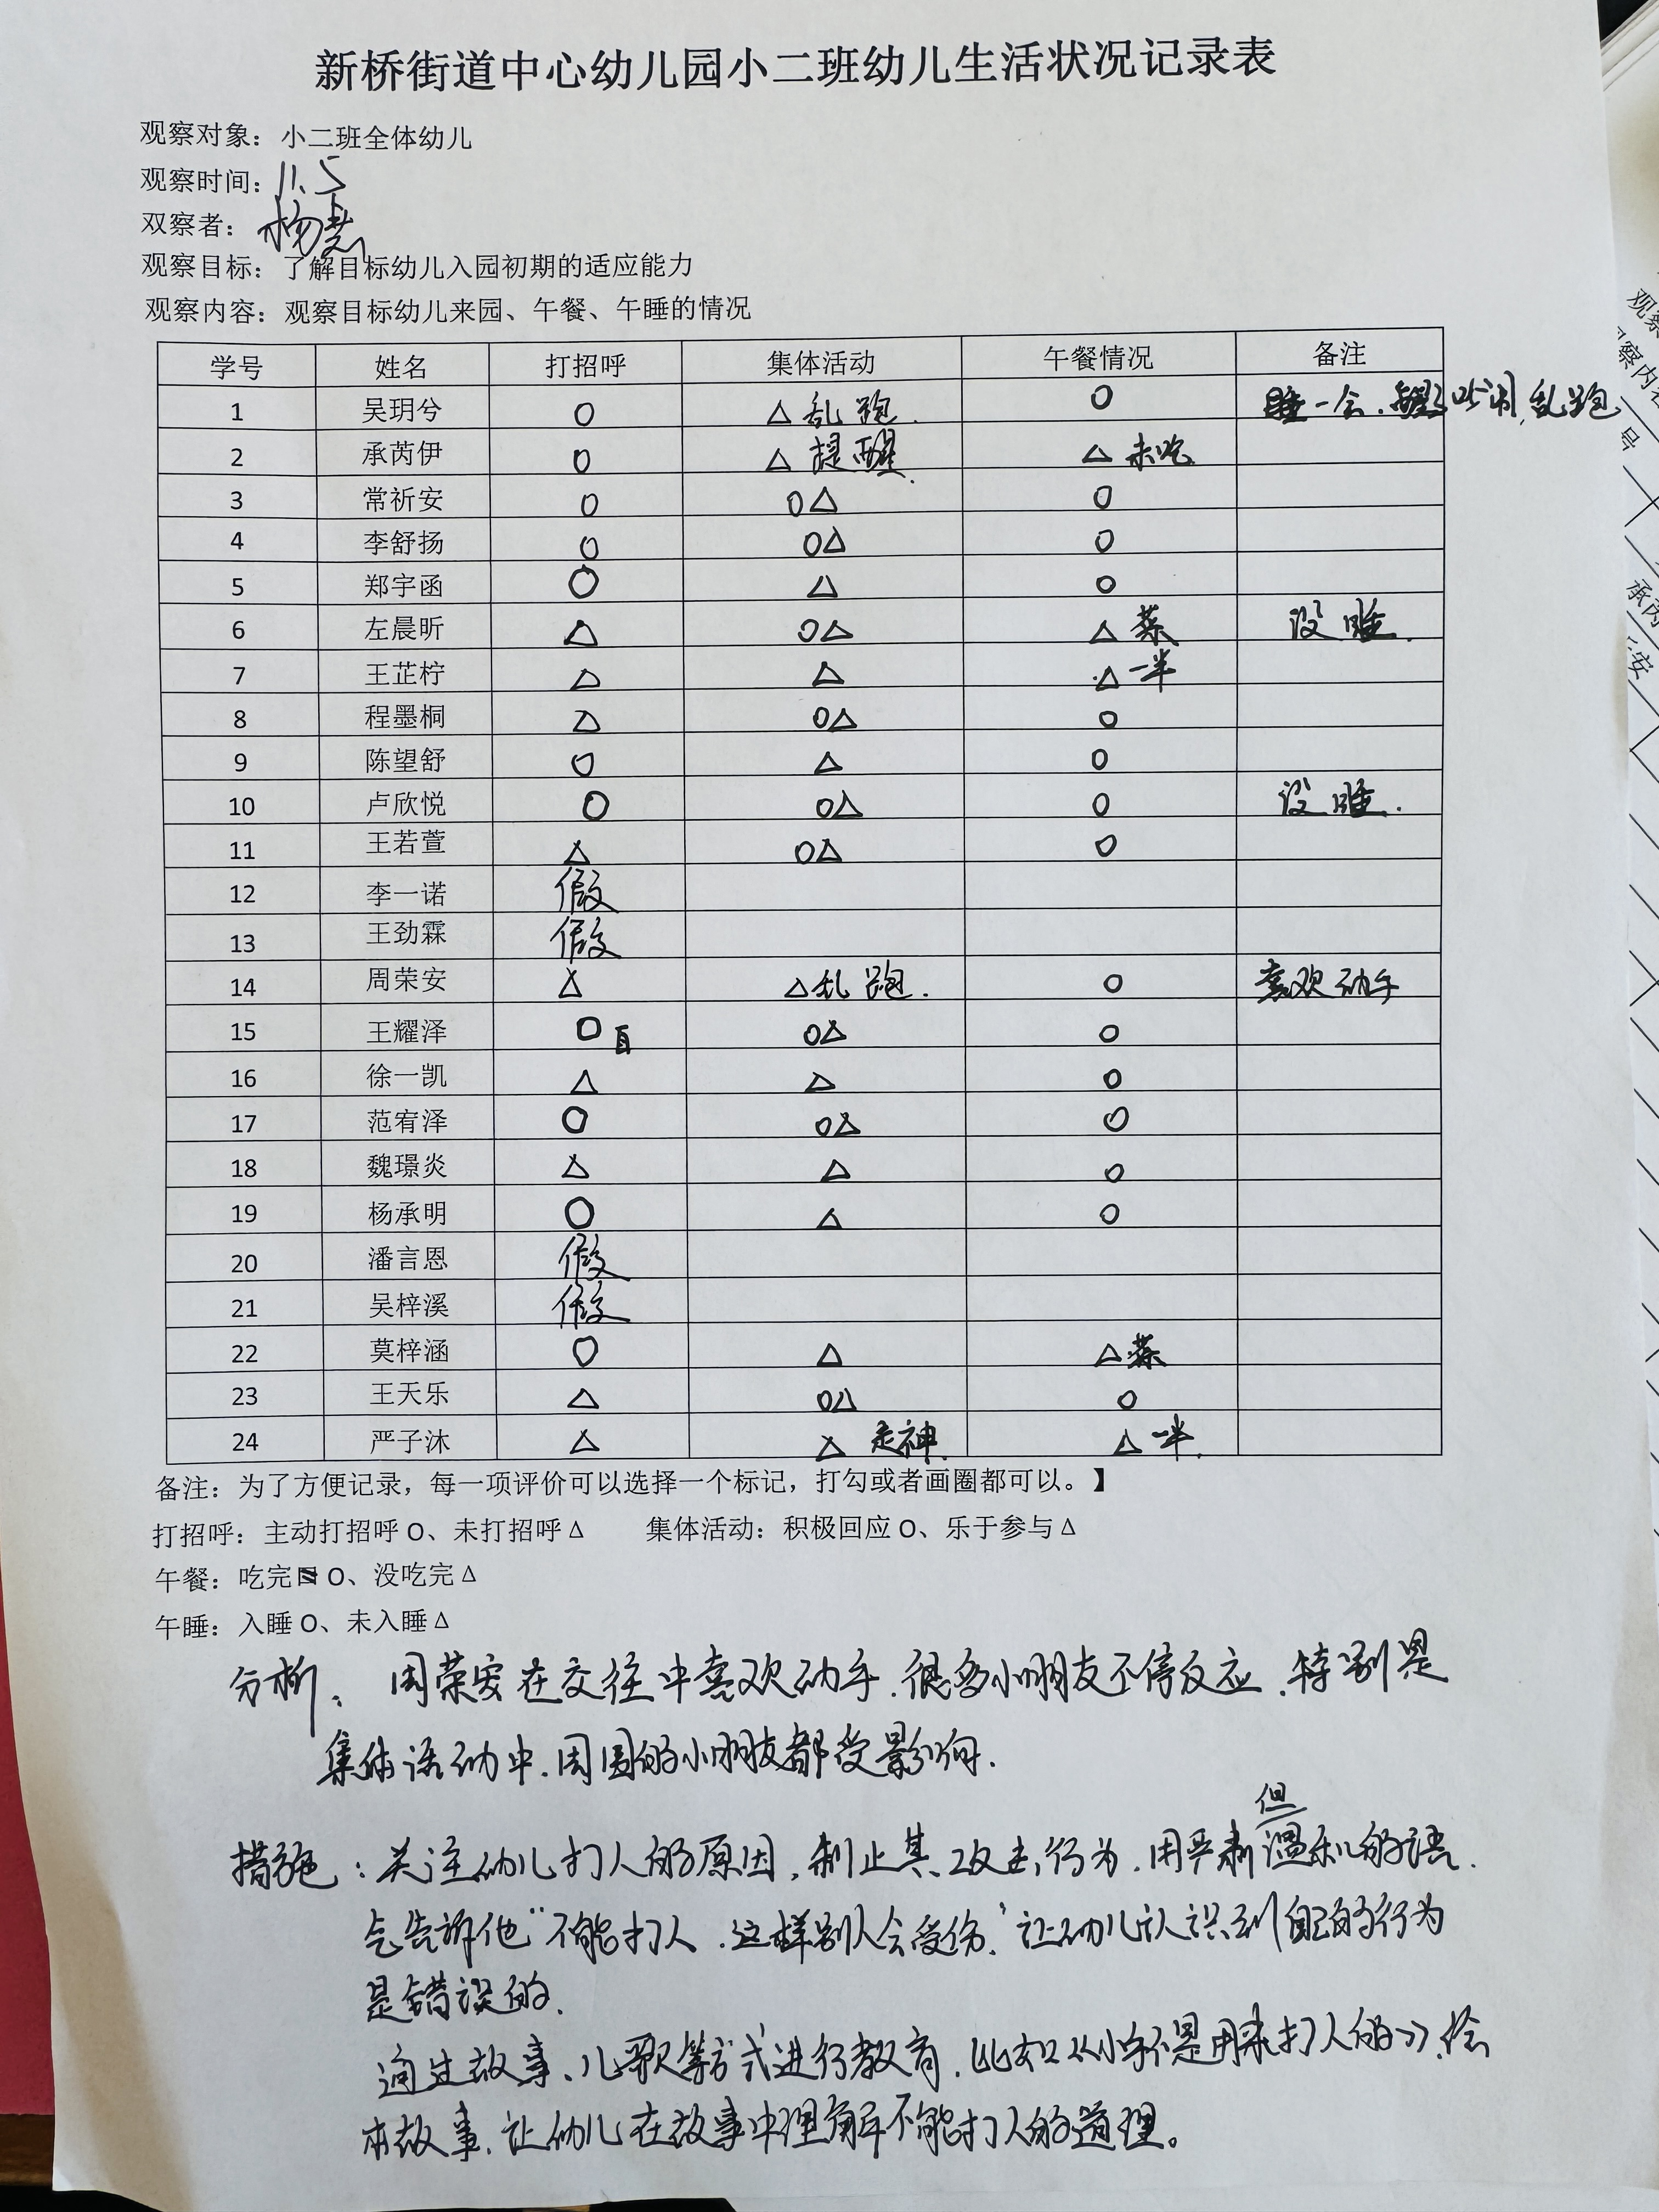 新桥街道中心幼儿园小二班幼儿生活状况记录表
观察对象：小二班全体幼儿
观察时间：11.5
双察者：杨
观察目标：了解目标幼儿入园初期的适应能力
观察内容：观察目标幼儿来园、午餐、午睡的情况
学号 姓名 打招呼 集体活动 午餐情况 备注
1 吴玥兮 O △ 乱跑. O 睡一会.醒了吵闹,乱跑
2 承芮伊 O △ 提醒. △ 未吃
3 常祈安 O O△ O
4 李舒扬 O O△ O
5 郑宇函 O △ O
6 左晨昕 △ O△ △ 菜 没睡.
7 王芷柠 △ △ △ 一半
8 程墨桐 △ O△ O
9 陈望舒 O △ O
10 卢欣悦 O O△ O 没睡.
11 王若萱 △ O△ O
12 李一诺 假
13 王劲霖 假
14 周荣安 △ △ 乱跑. O 喜欢动手
15 王耀泽 O O△ O
16 徐一凯 △ △ O
17 范宥泽 O O△ O
18 魏璟炎 △ △ O
19 杨承明 O △ O
20 潘言恩 假
21 吴梓溪 假
22 莫梓涵 O △ △ 菜
23 王天乐 △ O△ O
24 严子沐 △ △ 走神. △ 一半.
备注：为了方便记录，每一项评价可以选择一个标记，打勾或者画圈都可以。】
打招呼：主动打招呼 O、未打招呼 Δ 集体活动：积极回应 O、乐于参与 Δ
午餐：吃完 O、没吃完 Δ
午睡：入睡 O、未入睡 Δ
分析：周荣安在交往中喜欢动手.很多小朋友不停反应.特别是
集体活动中.周围的小朋友都受影响.
措施：关注幼儿打人的原因,制止其攻击行为.用严肃但温和的语
气告诉他“不能打人.这样别人会受伤.”让幼儿认识到自己的行为
是错误的.
通过故事、儿歌等方式进行教育.比如《小手不是用来打人的》.绘
本故事.让幼儿在故事中理解不能打人的道理。
观察内容
号
承芮
安